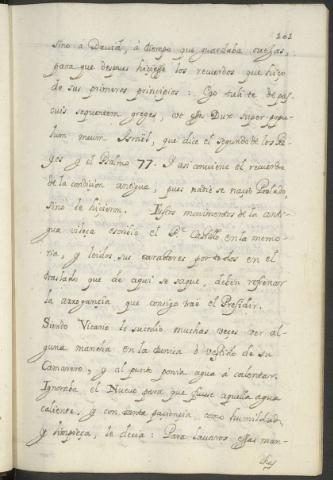 101
sino a David, á tiempo que guardaba ovejas,
para que despues hiciesse los recuerdos que hizo
de sus primeros principios: Ego tuli te de pas-
cuis sequentem greges, ut esses Dux super popu-
lum meum Israël, que dice el segundo de los Re-
yes y el Psalmo 77. Y asi conviene el recuerdo
de la condicion antigua, pues nadie se nació Prelado,
sino le hicieron. Estos movimientos de la anti-
gua vileza escribió el Pe Castillo en la memo-
ria, y leidos sus carácteres por todos en el
traslado que de aqui se saque, deben refrenar
la arrogancia que consigo trae el Presidir.
Siendo Vicario le sucedió muchas veces ver al-
guna mancha en la tunica ó vestido de su
Camarero, y al punto ponia agua á calentar.
Ignoraba el Nuevo para que fuese aquella agua
caliente, y con tanta paciencia, como humildad,
y limpieza, le decia: Para lavaros essas man-
chas